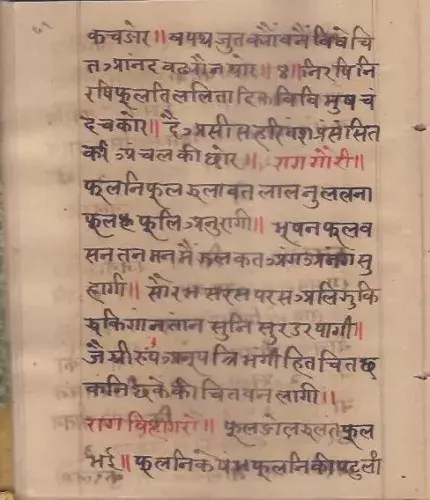 कचडोर॥ वपथ जुत क्यौं वनैं विवि चि
त आनंद वढ्यौ न थोर॥४॥ निरषि नि
रषि फूलति ललितादिक विवि मुष चं
द चकोर॥ दै असीस हरिवंश प्रसंसित
करि अंचल की छोर॥ राग गौरी॥
फूलनि फूल झुलावत लाल नु ललना
फूल फूलि अनुरागी॥ भूषन फूल व
सन तन मन मैं झलकत अंग अनंग सु
हागी॥ सौरभ सरस परस अलि झुकि
झुकि गान तान सुनि सुर उर पागी॥
जै श्री रूप अनूप त्रिभंगी हित चित छ
कनि छके की चितवन लागी॥
राग विहागरो॥ फूल डोल झुलत फूल
भई॥ फूलनि के षंभ फूलनि की पटुली